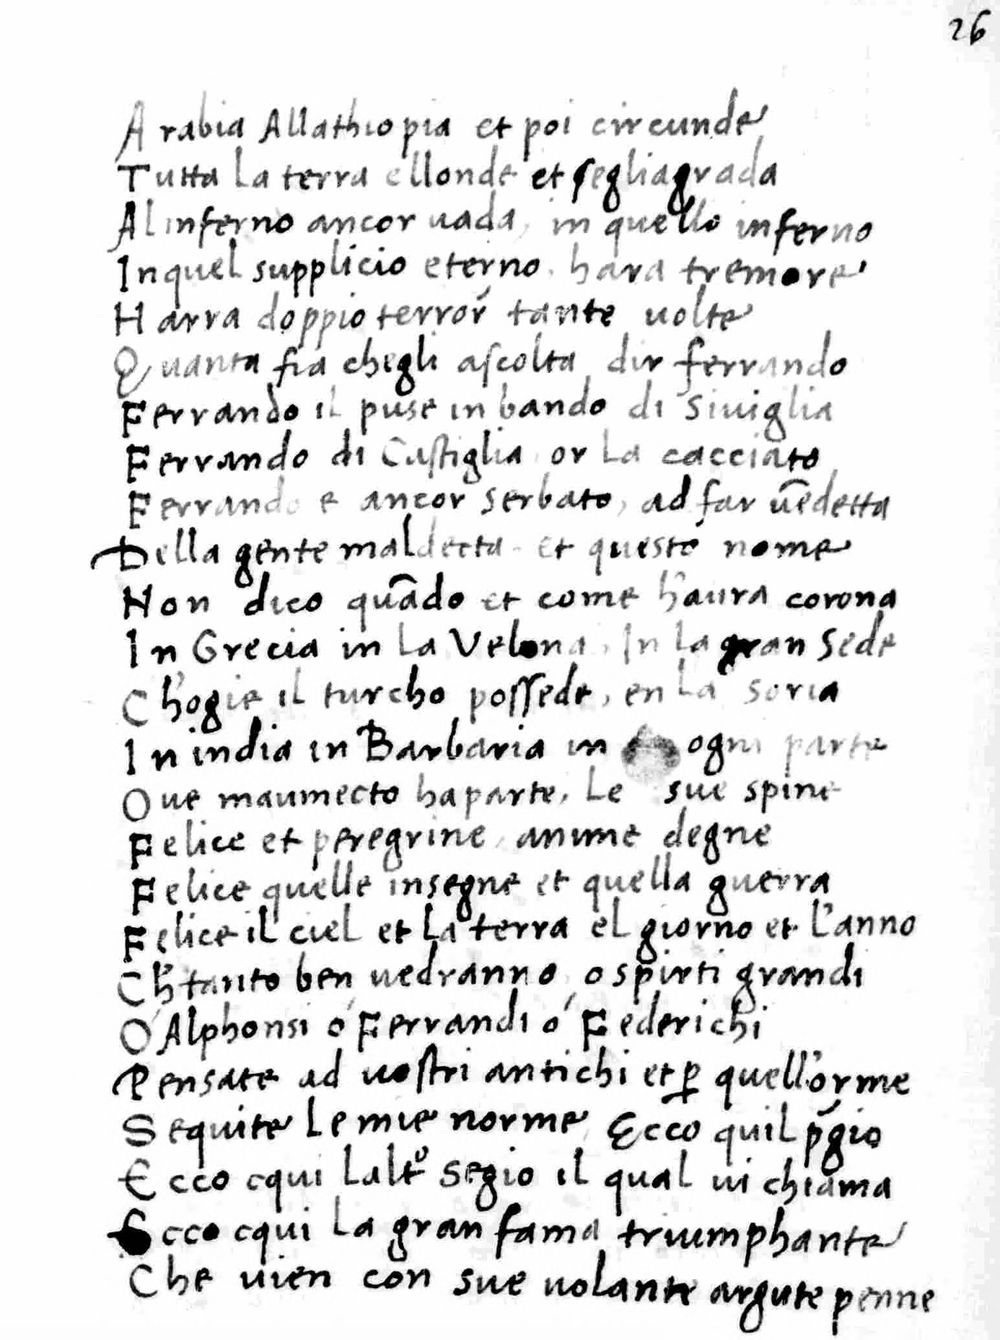 26
Arabia Allathiopia et poi circunde
Tutta la terra ellonde et segliagrada
Alinferno ancor uada, in quello inferno
Inquel supplicio eterno. hara tremore
Harra doppio terrór tante uolte
Quanta fia chegli ascolta dir ferrando
Ferrando il puse in bando di Siuiglia
Ferrando di Castiglia or la cacciato
Ferrando e ancor serbato, ad far uēdetta
Della gente maldecta. et questo nome
Non dico quādo et come h'aura corona
In Grecia in la Velona, In la gran Sede
Ch'ogie il turcho possede, en la Soria
In india in Barbaria in ogni parte
Oue maumecto haparte, le sue spine
Felice et peregrine, anime degne
Felice quelle insegne et quella guerra
Felice il ciel et la terra el giorno et l'anno
Ch'tanto ben uedranno, o spirti grandi
O' Alphonsi o' Ferrandi o' Federichi
Pensate ad uostri antichi et ꝑ quell'orme
Sequite le mie norme, Ecco quil p̄gio
Ecco cqui laltᵒ segio il qual ui chiama
Ecco cqui la gran fama triumphante
Che uien con sue uolante argute penne